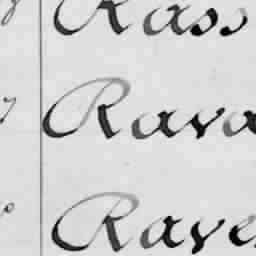 Rass
Rava
Rave